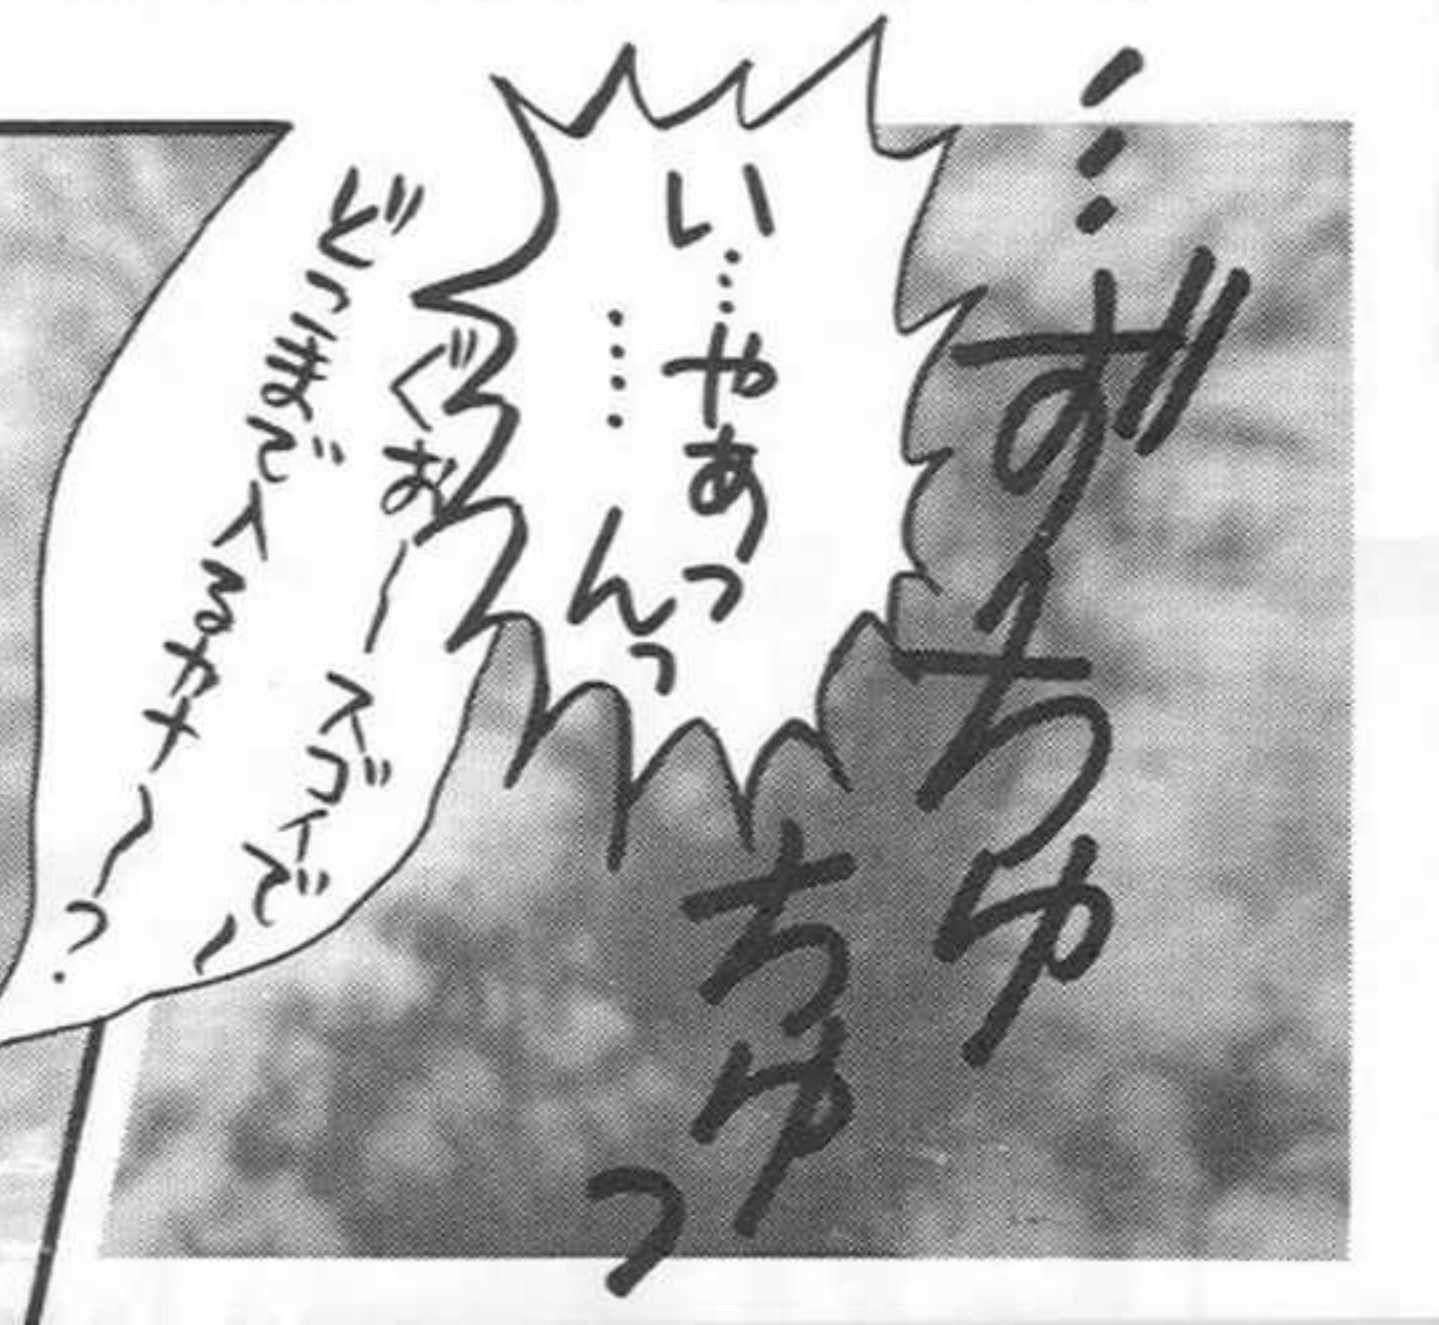 …ずちゅ
ちゅっ
い…やあっ
……んっ
ぐおーースゴイでー
どこまで入るカナーー？